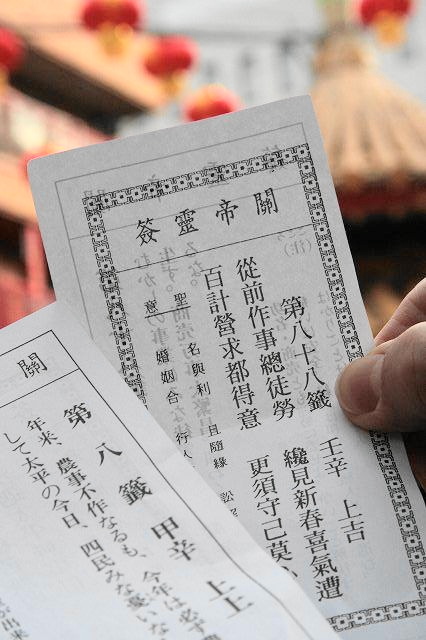 關帝靈簽
第八十八籤 壬辛 上吉
從前作事總徒勞 纔見新春喜氣遭
百計營求都得意 更須守己莫
聖意 名與利 且隨緣 訟
婚姻合 行人
關
第八籤 甲辛 上上
年来、農事不作なるも、今年は必ず
して太平の今日、四民みな憂いな
出来